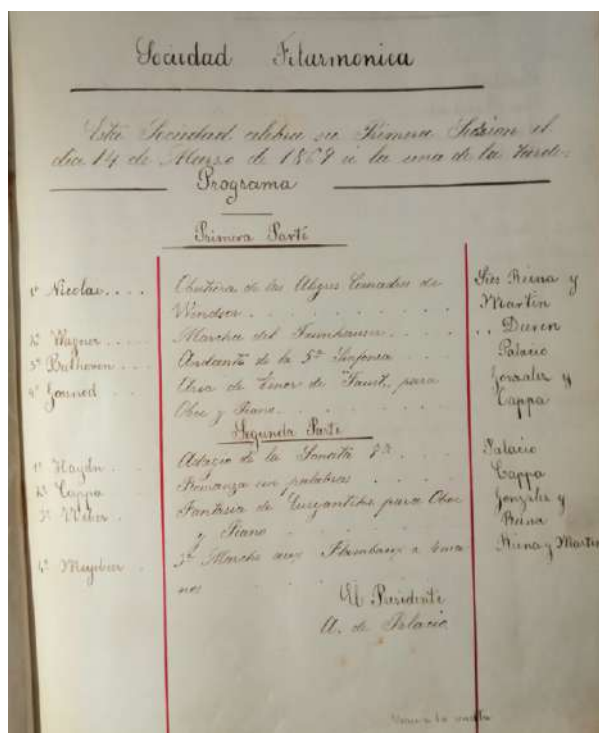 Sociedad Filarmonica
Esta Sociedad celebra su Primera Sesion el
dia 14 de Marzo de 1869 a la una de la tarde.
Programa
Primera Parte
1º Nicolai.... Obertura de las Alegres Comadres de Sres Reina y
Windsor.......... Martin
2º Wagner..... Marcha del Taunhauser.... .. Duren
3º Bethoven... Andante de la 5ª Sinfonia.... Palacio
4º Gounod... Aria de tenor de Faust, para Gonzalez y
Oboe y Piano....... Cappa
Segunda Parte
1º Haydn... Adagio de la Sonata... Palacio
2º Cappa... Romanza sin palabras.... Cappa
3º Weber.. Fantasia de para Oboe Gonzalez y
y Piano....... Reina
4º Meyebeer.. 3ª Marcha aux Flambeaux a 4 ma Reina y Martin
nos.....
El Presidente
A. de Palacio